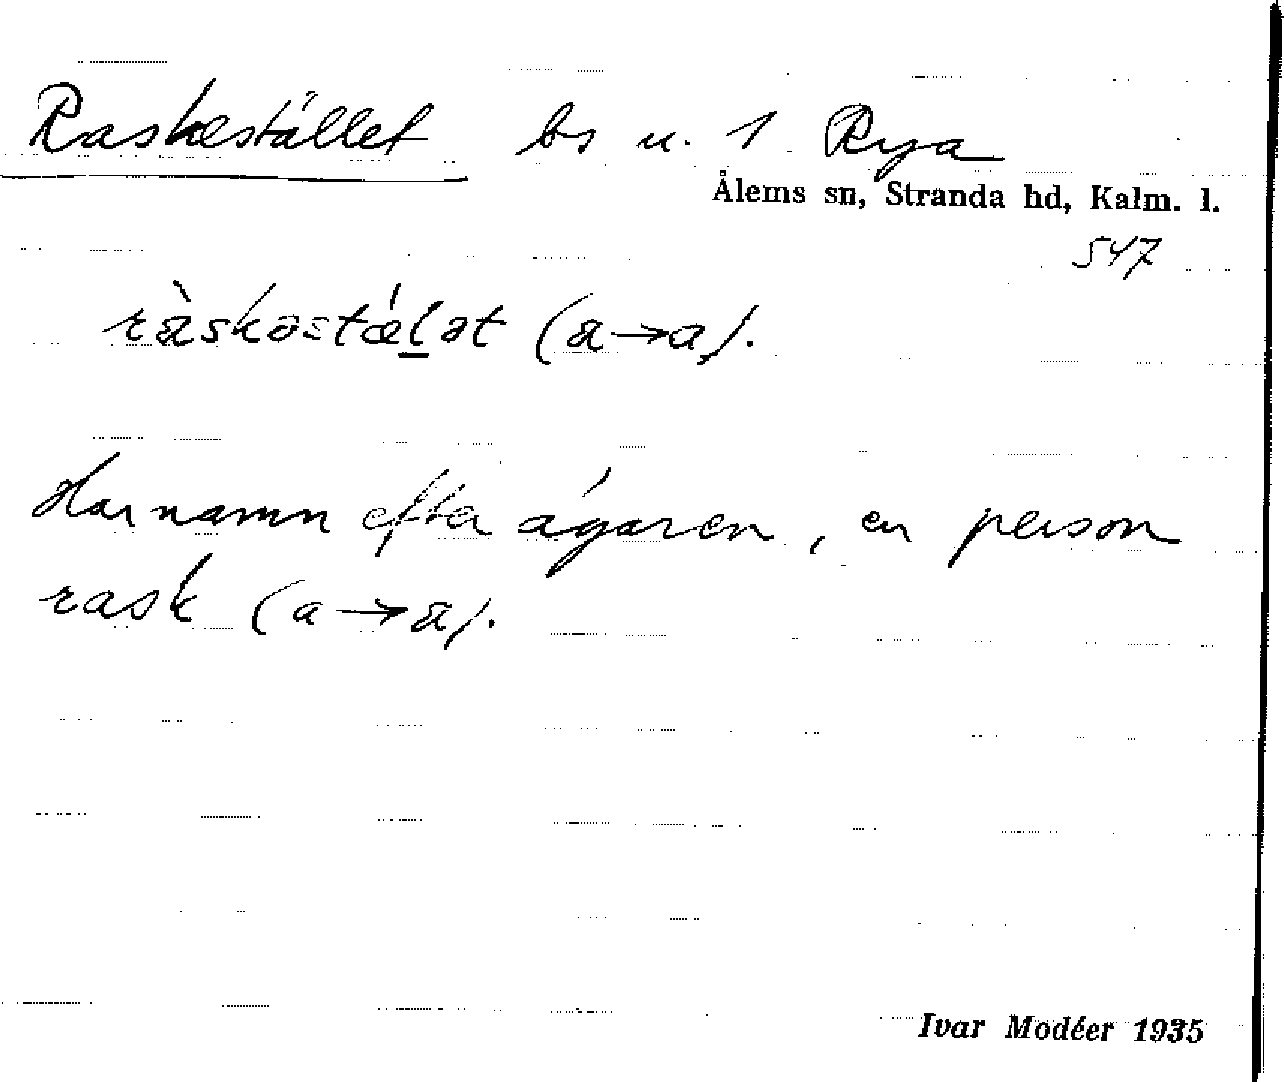 Raskestället bs u. 1 Rya
Ålems sn, Stranda hd, Kalm. l.
547
ràskəstǽl̲ət (a→a).
Har namn efter ägaren, en person
rask (a→a).
Ivar Modéer 1935